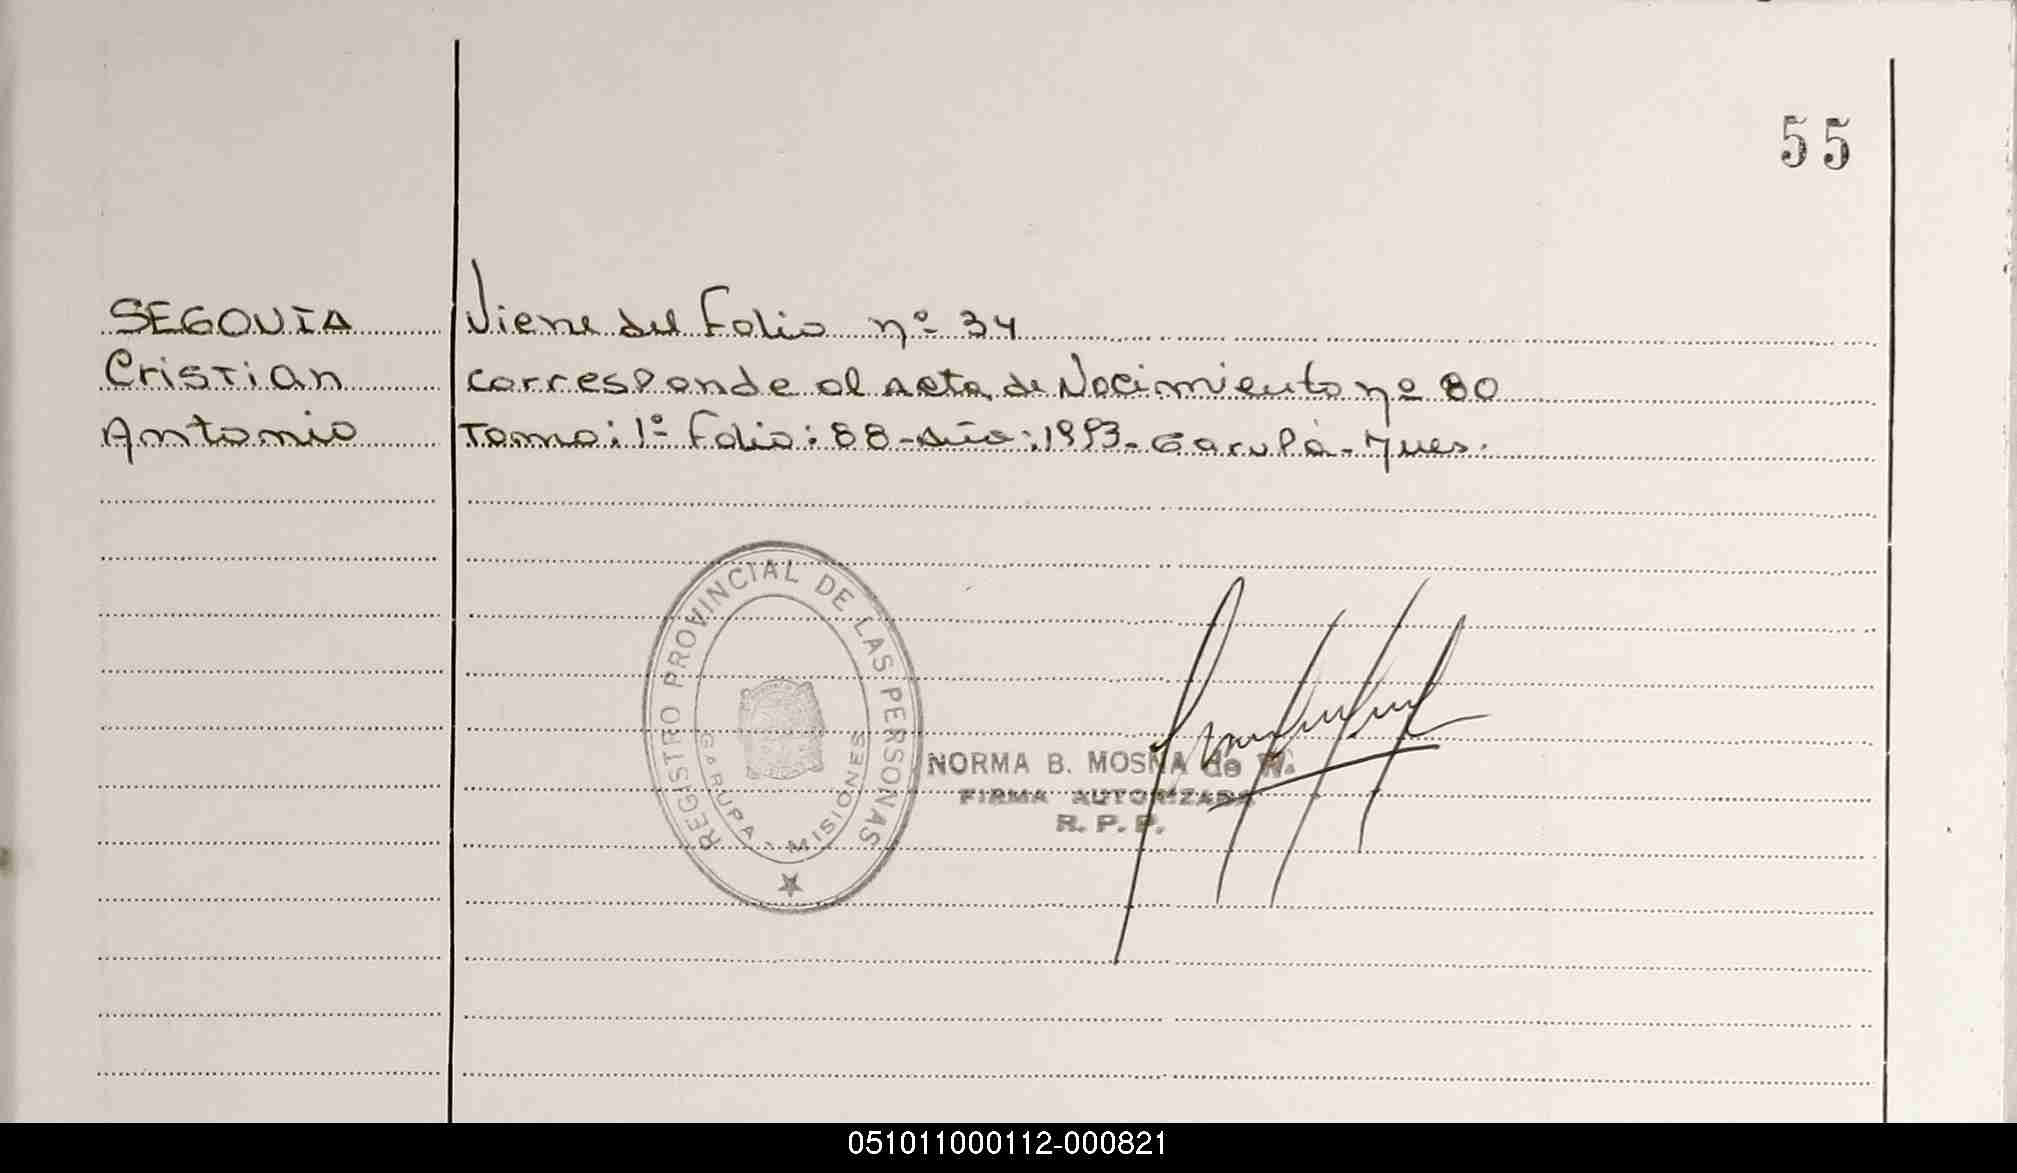 55
SEGOVIA Viene del Folio nº 34
Cristian corresponde al acta de Nacimiento nº 80
Antonio Tomo: 1º Folio: 88 - Año: 1993 - Garupá - Mnes.
REGISTRO PROVINCIAL DE LAS PERSONAS
GARUPA - MISIONES
NORMA B. MOSNA de W.
FIRMA AUTORIZADA
R. P. P.
051011000112-000821